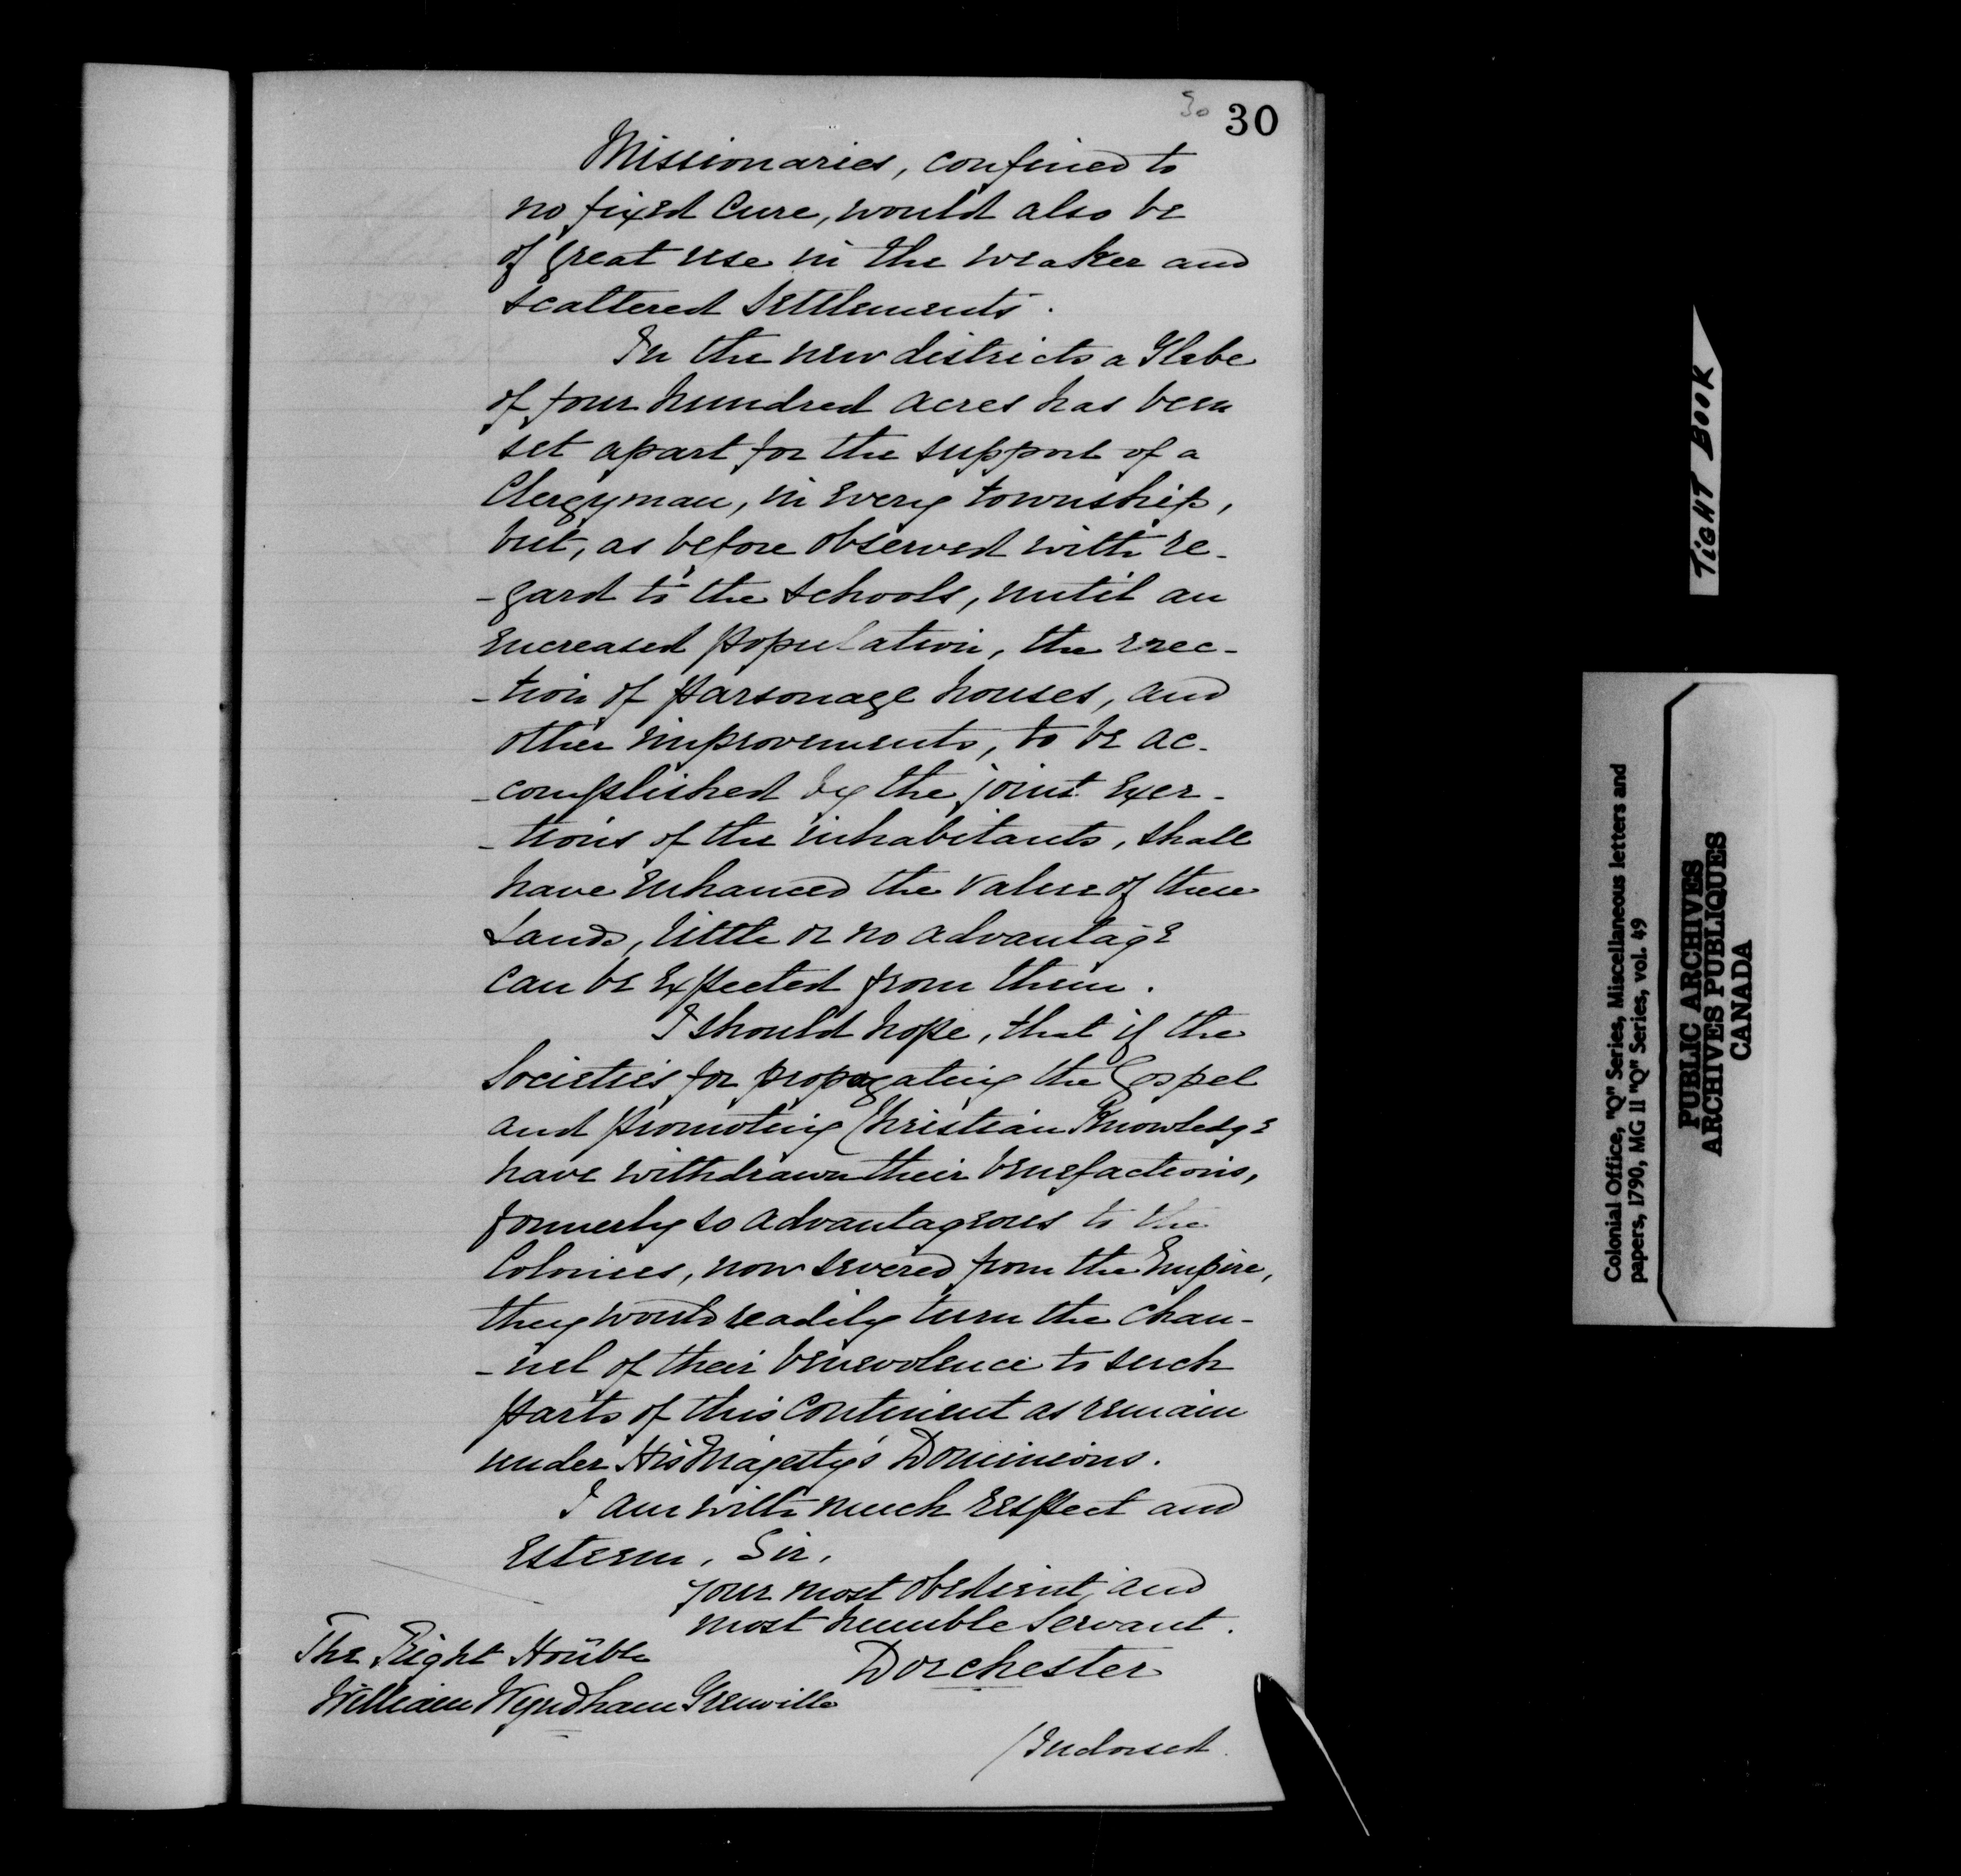 30 30
Missionaries, confined to
no fixed Cure, would also be
of great use in the weaker and
scattered settlements.
In the new districts a Glebe
of four hundred acres has been
set apart for the support of a
Clergyman, in every township,
but, as before observed with re-
-gard to the schools, until an
encreased population, the erec-
-tion of parsonage houses, and
other improvements, to be ac-
-complished by the joint exer-
-tions of the inhabitants, shall
have enhanced the value of these
Lands, little or no advantage
can be expected from them.
I should hope, that if the
Societies for propagating the Gospel
and promoting Christian Knowledge
have withdrawn their benefactions,
formerly so advantageous to the
Colonies, now severed from the Empire,
they would readily turn the chan-
-nel of their benevolence to such
parts of this Continent as remain
under His Majesty's Dominions.
I am with much respect and
Esteem, Sir,
your most obedient, and
most humble Servant.
Dorchester
The Right Honble
William Wyndham Grenville
/Endorsed.
TIGHT BOOK
Colonial Office, "Q" Series, Miscellaneous letters and
papers, 1790, MG 11 "Q" Series, vol. 49
PUBLIC ARCHIVES
ARCHIVES PUBLIQUES
CANADA